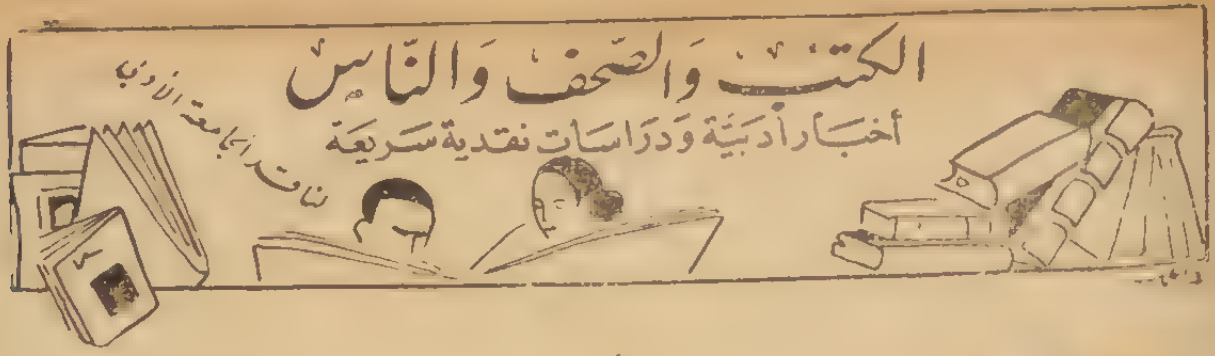 الكتب وَالصّحف وَالنّاس
أخبار أدبيّة ودراسات نقدية سريعة
لناقد الجامعة الأدبي